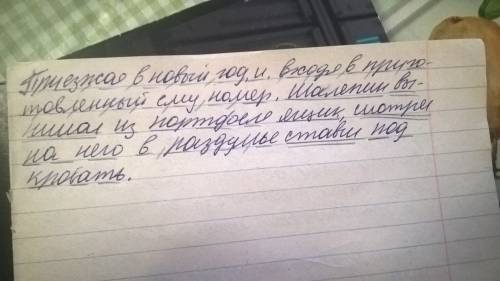 Приезжая в новый год и. входя в приго-
товленный ему номер. Шаляпин вы-
нимал из портфеля ящик, смотрел
на него в раздумье ставил под
кровать.